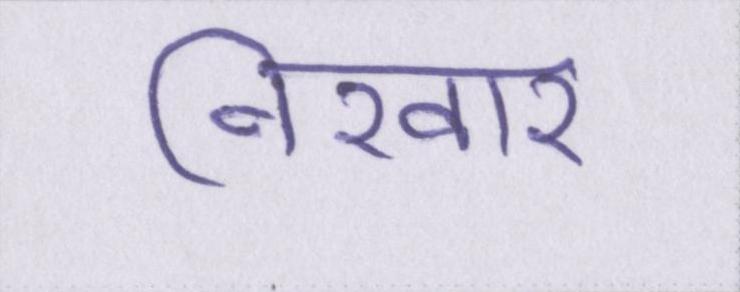 निखार